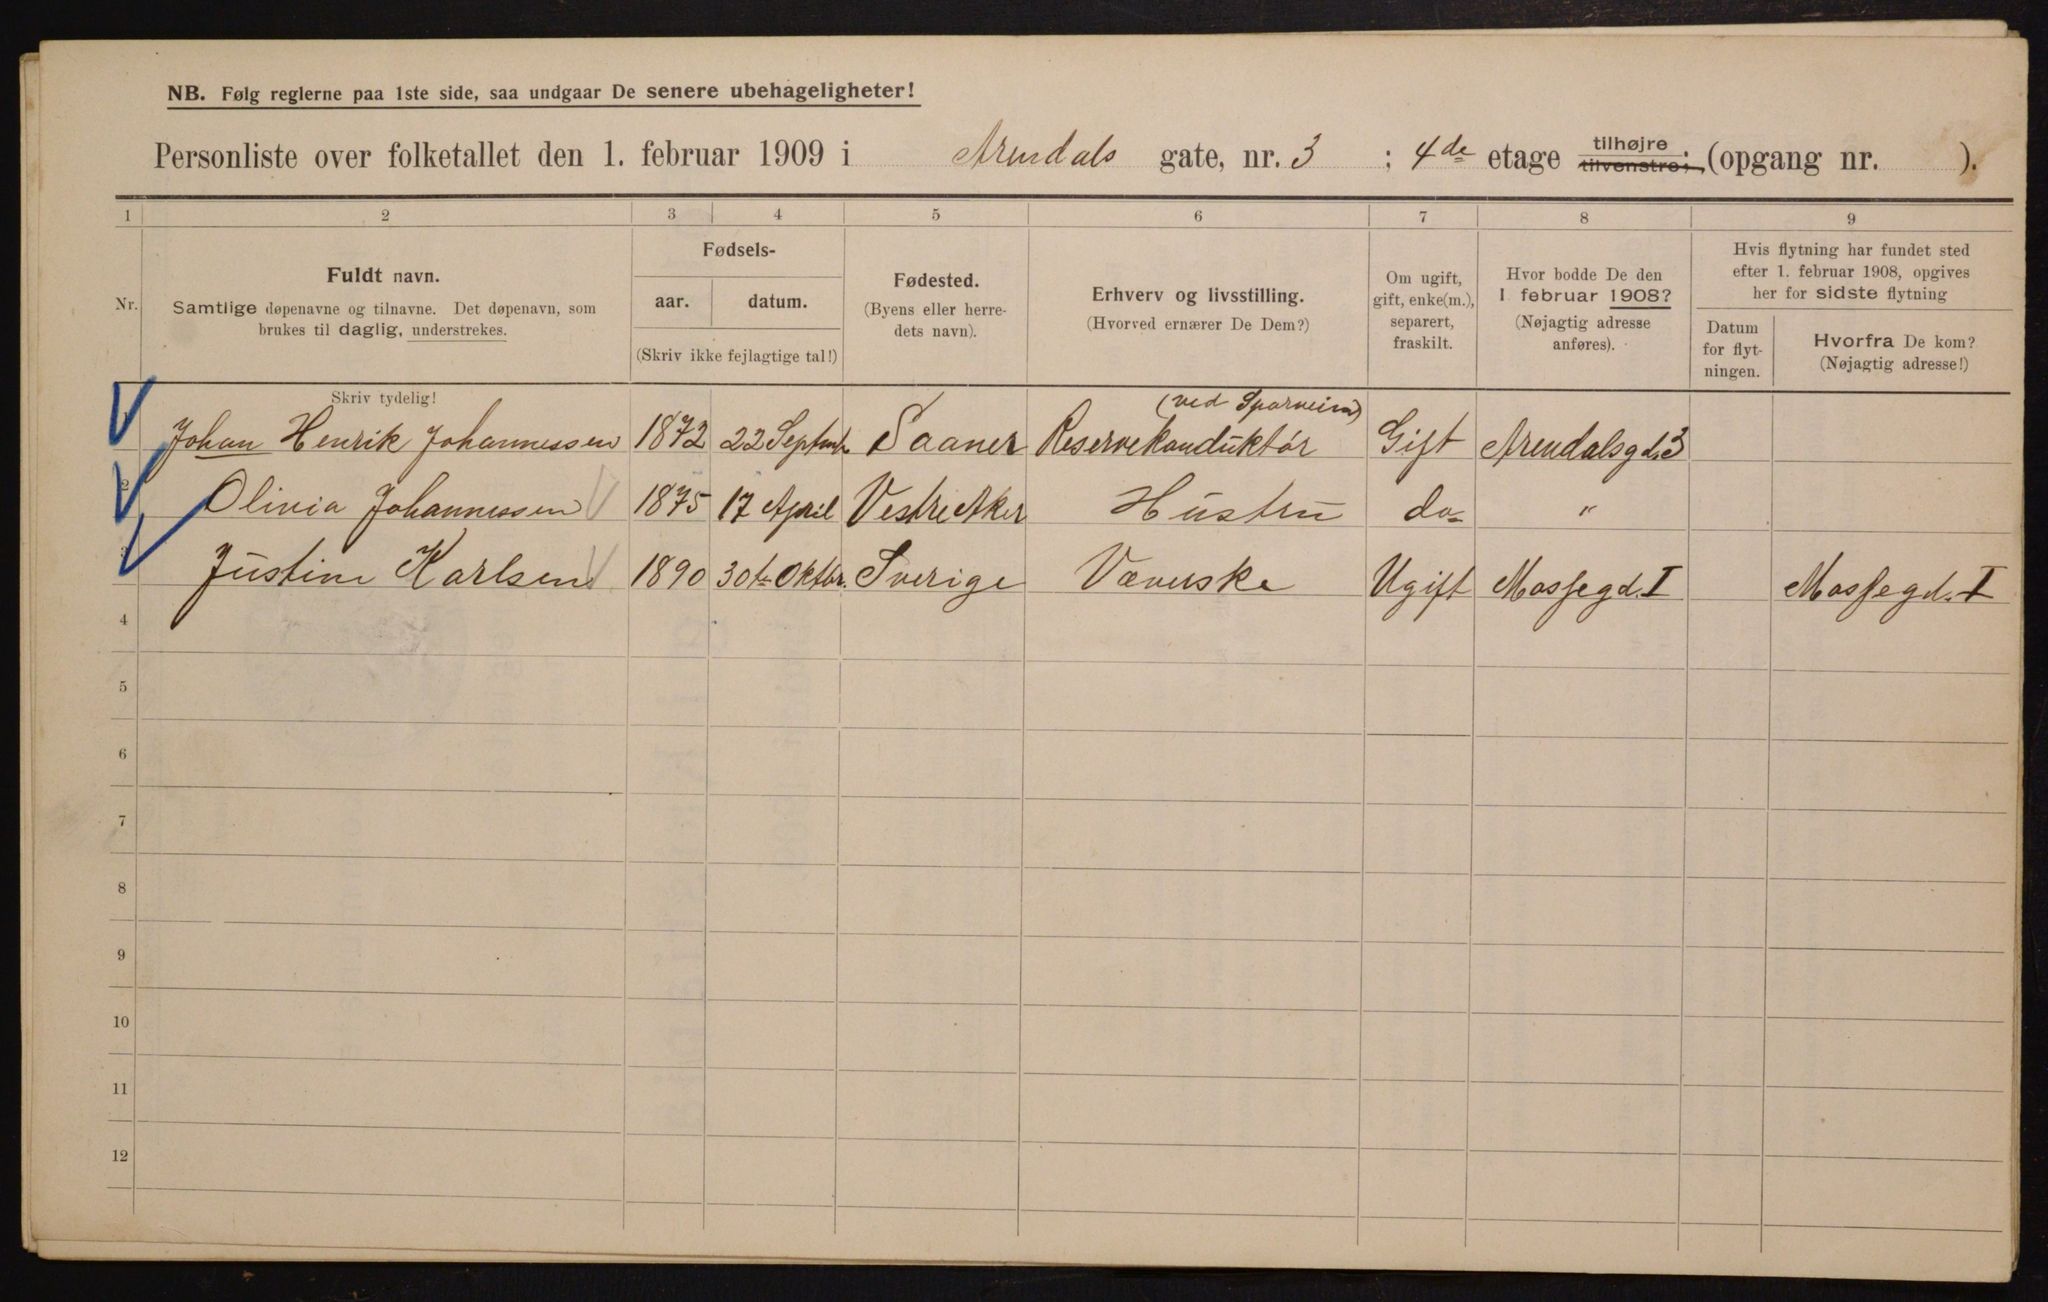 NB. Følg reglerne paa 1ste side, saa undgaar De senere ubehageligheter!
Personliste over folketallet den 1. februar 1909 i Arendals gate, nr. 3 ; 4de etage tilhøjre tilvenstre; (opgang nr. ).
1 2 3 4 5 6 7 8 9
Nr.
Fuldt navn.
Samtlige døpenavne og tilnavne. Det døpenavn, som
brukes til daglig, understrekes.
Skriv tydelig!
Fødsels-
aar. datum.
(Skriv ikke fejlagtige tal!)
Fødested.
(Byens eller herre-
dets navn).
Erhverv og livsstilling.
(Hvorved ernærer De Dem?)
Om ugift,
gift, enke(m.),
separert,
fraskilt.
Hvor bodde De den
1 februar 1908?
(Nøjagtig adresse
anføres).
Hvis flytning har fundet sted
efter 1. februar 1908, opgives
her for sidste flytning
Datum
for flyt-
ningen.
Hvorfra De kom?
(Nøjagtig adresse!)
(ved Sporveien)
Johan Henrik Johannessen 1872 22 Septmbr Saaner Reservekonduktør Gift Arendalsgd. 3
2 Olivia Johannessen 1875 17 April Vestre Aker Hustru do- "
3 Justine Karlsen 1890 30te Oktbr. Sverige Væverske Ugift Mossegd. I Mossegd. I
4
5
6
7
8
9
10
11
12